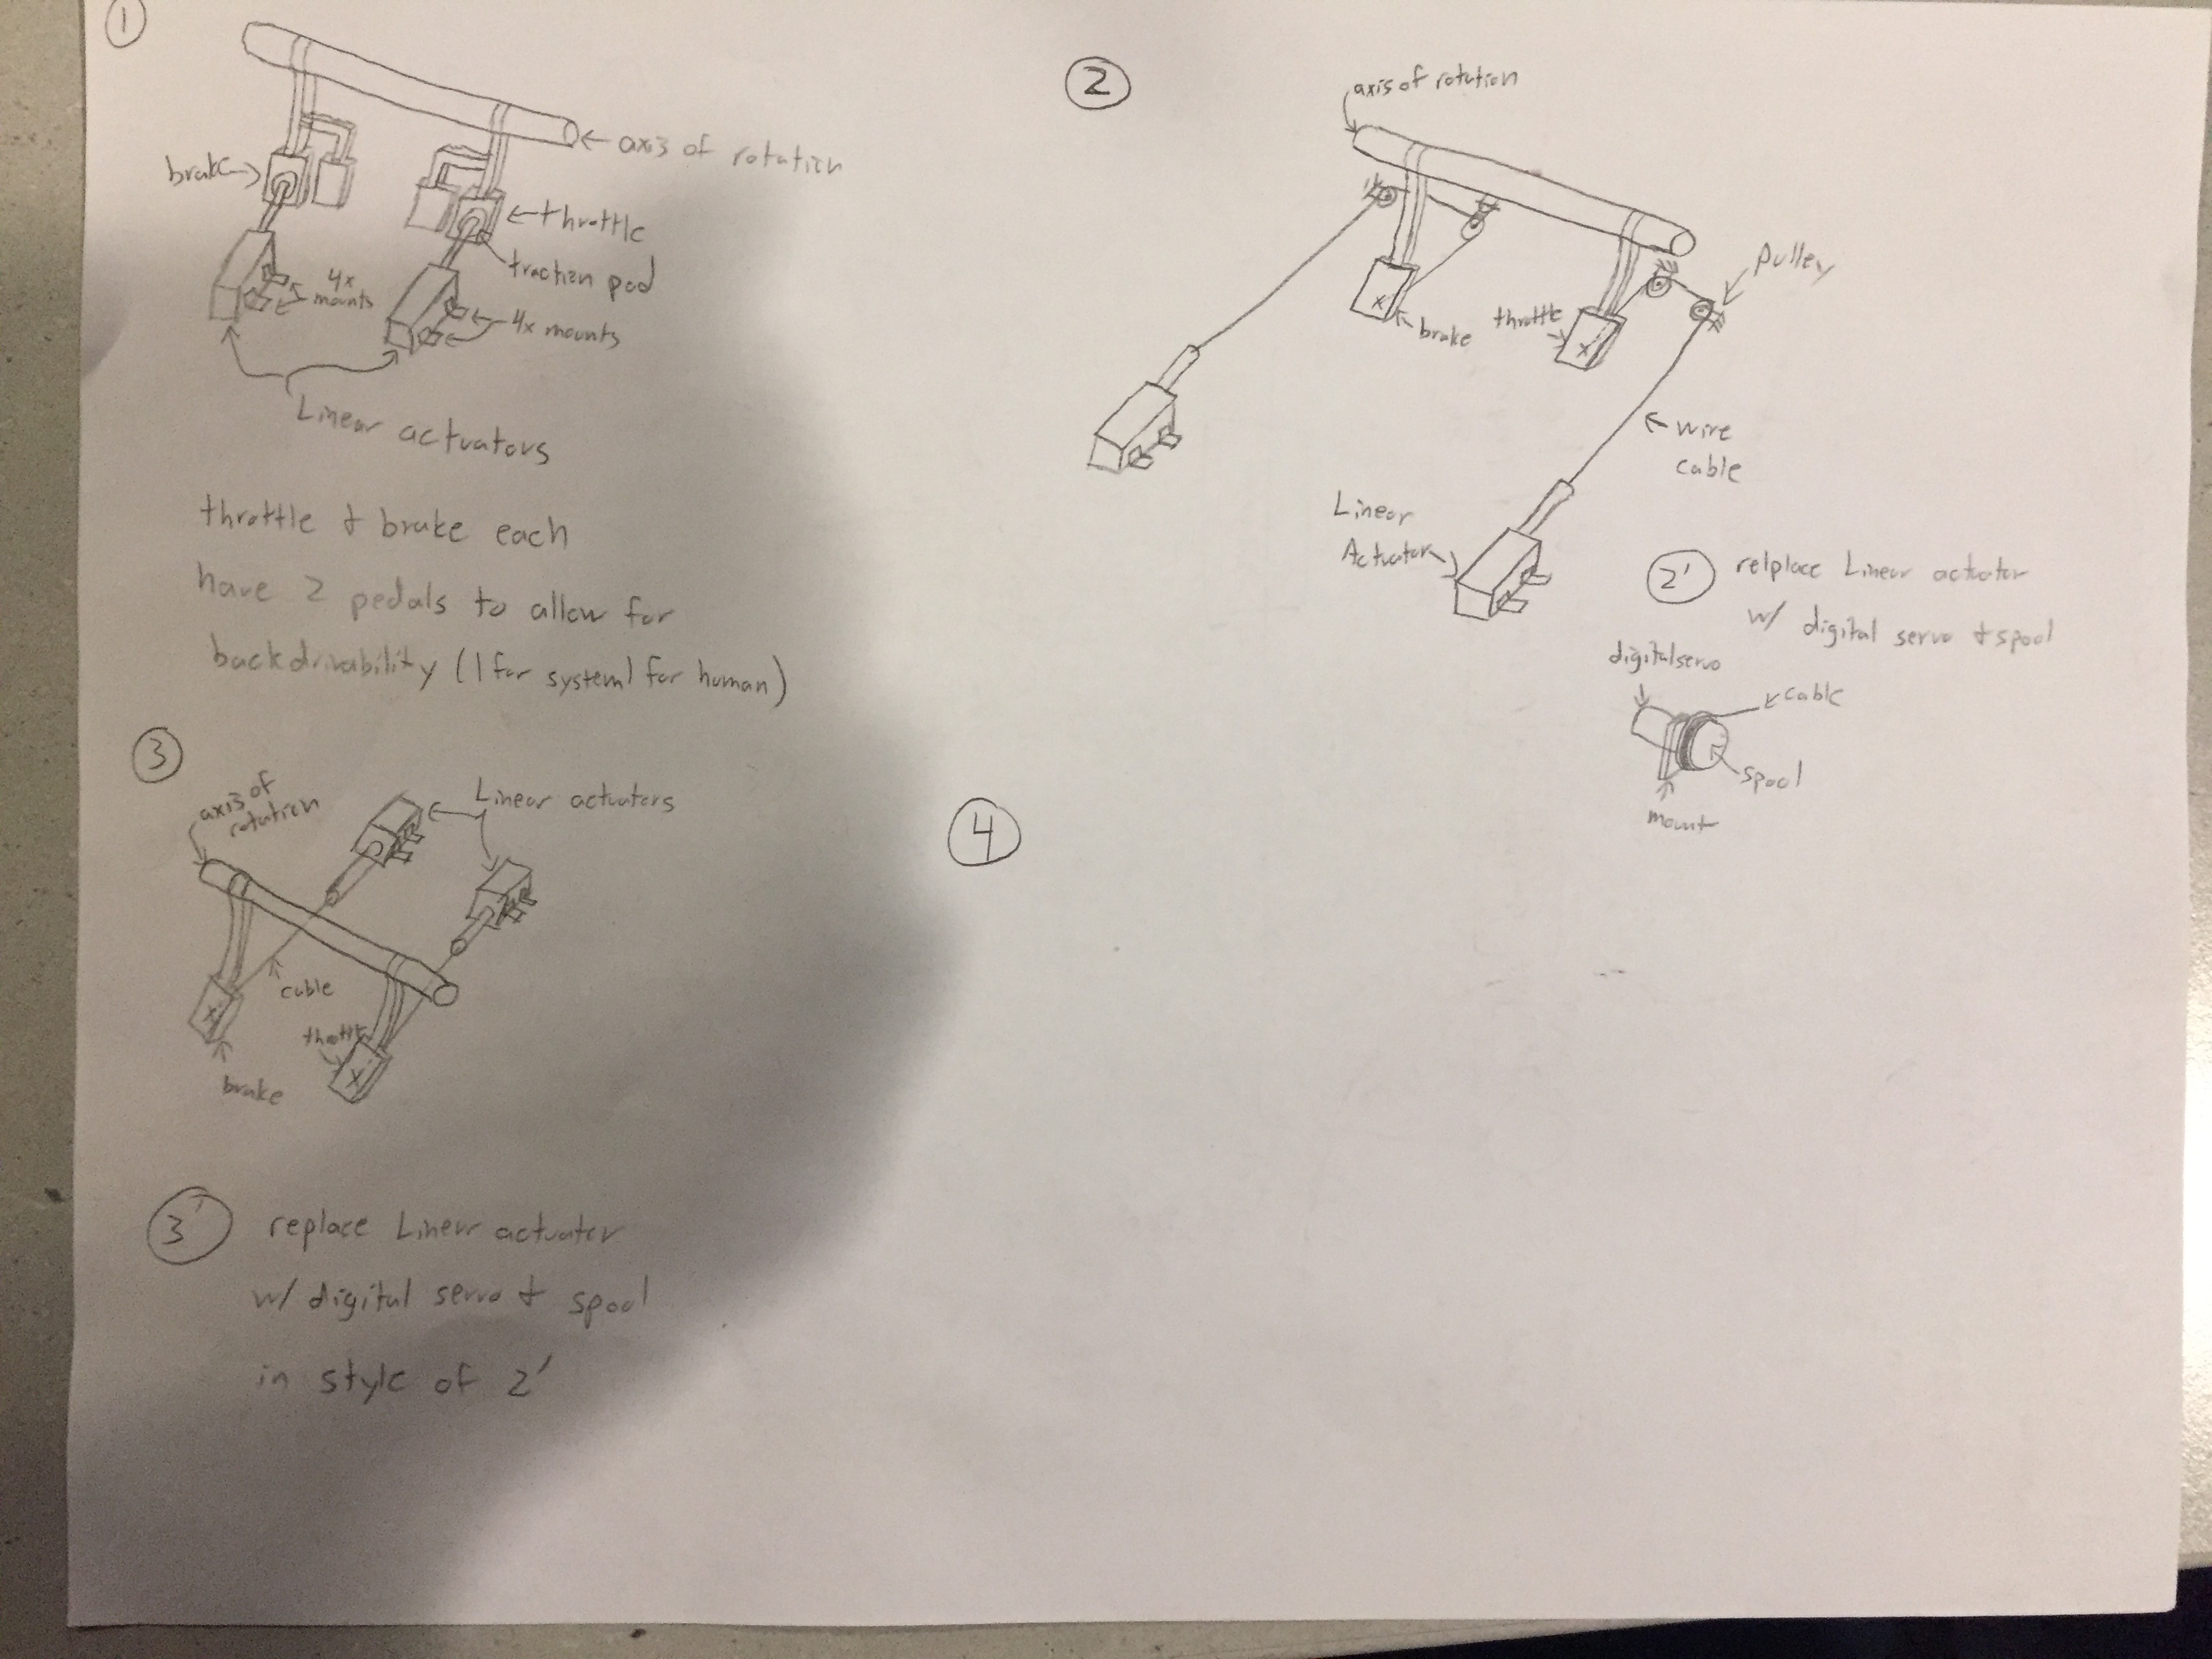 1
axis of rotation
brake
throttle
traction pad
4x
mounts
4x mounts
Linear actuators
throttle & brake each
have 2 pedals to allow for
backdrivability (1 for system 1 for human)
2
axis of rotation
pulley
brake
throttle
wire
cable
Linear
Actuator
2' relplace Linear actuator
w/ digital servo & spool
digital servo
cable
spool
mount
3
axis of
rotation
Linear actuators
cable
throttle
brake
4
3' replace Linear actuator
w/ digital servo & spool
in style of 2'